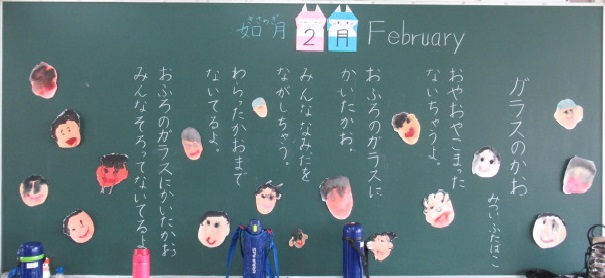 きさらぎ
如月 2 月 February
ガラスのかお
みつい ふたばこ
おやおやこまった
ないちゃうよ。
おふろのガラスに
かいたかお。
みんななみだを
ながしちゃう。
わらったかおまで
ないてるよ。
おふろのガラスにかいたかお
みんなそろってないてるよ